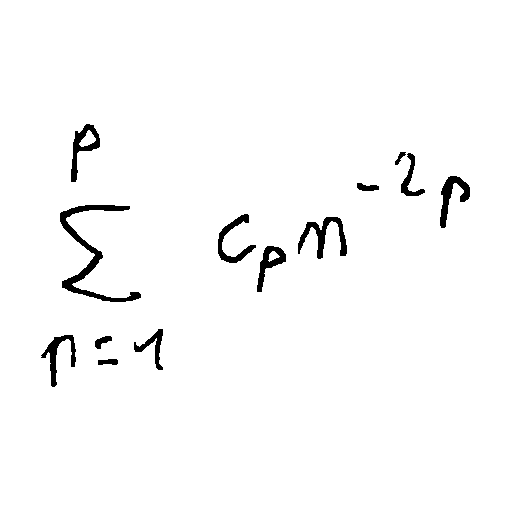 \sum_{p=1}^{P} c_p m^{-2p}